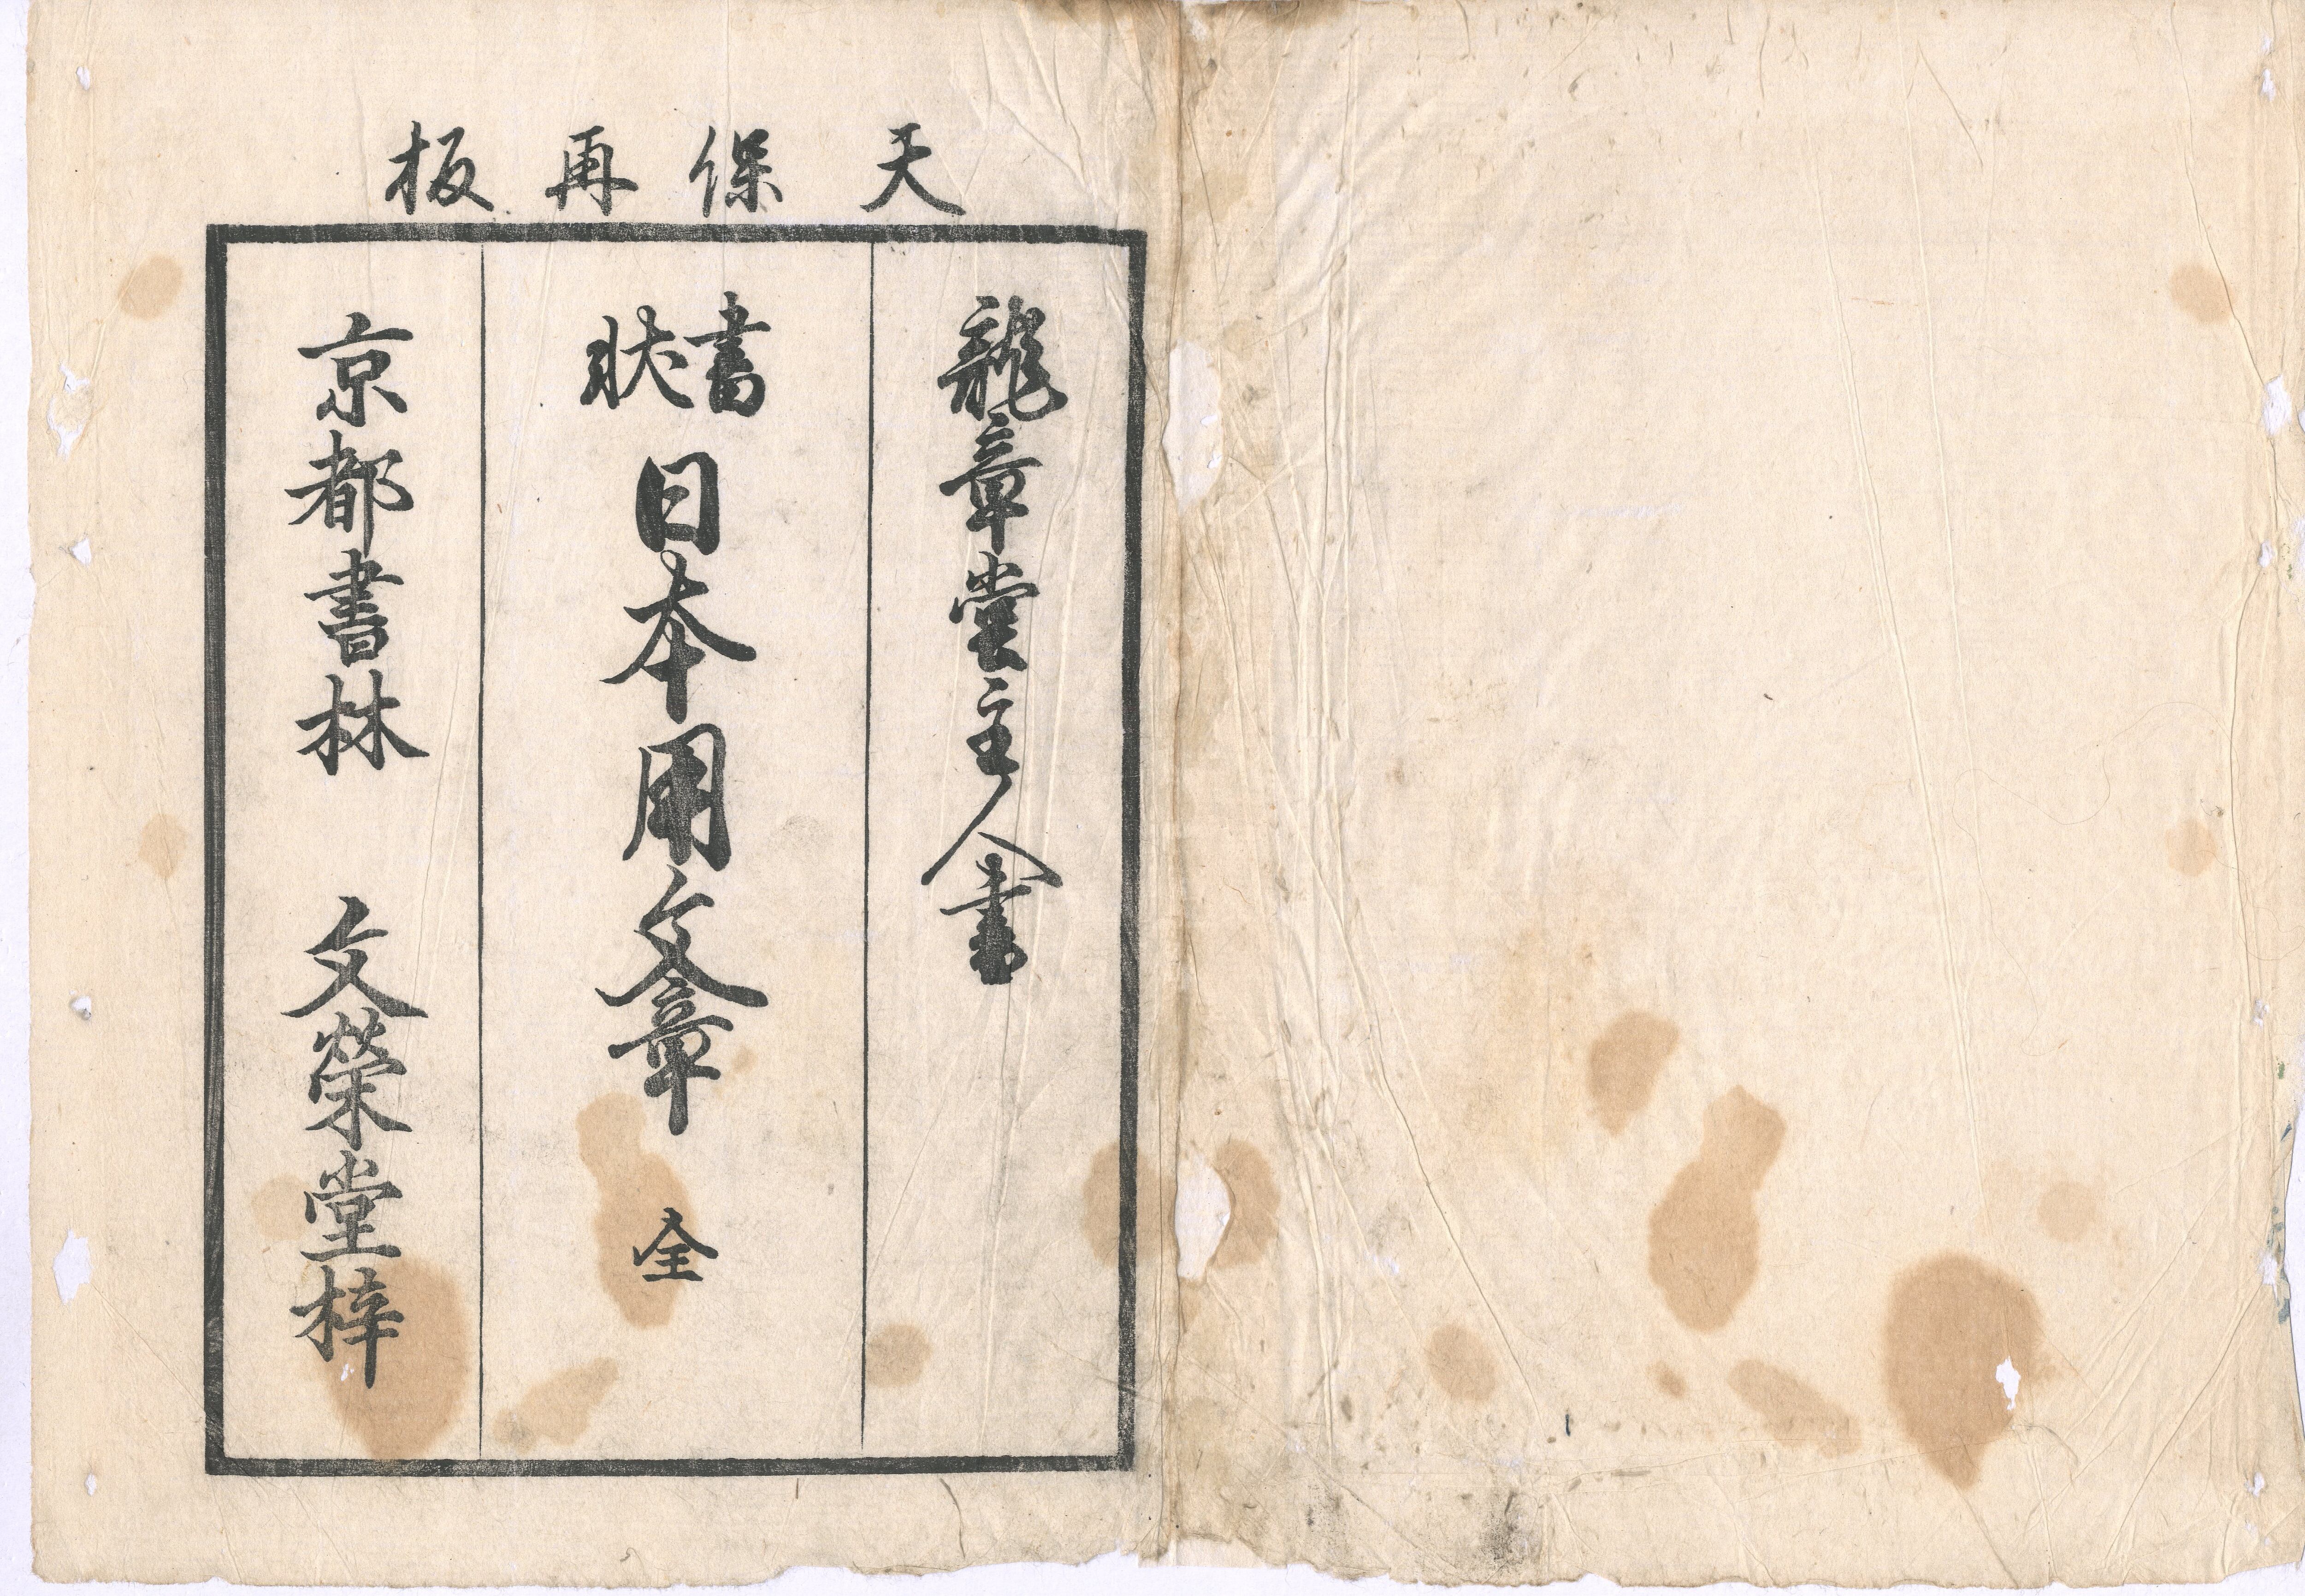 天保再板
龍章堂主人書
書状日本用文章 全
京都書林 文榮堂梓